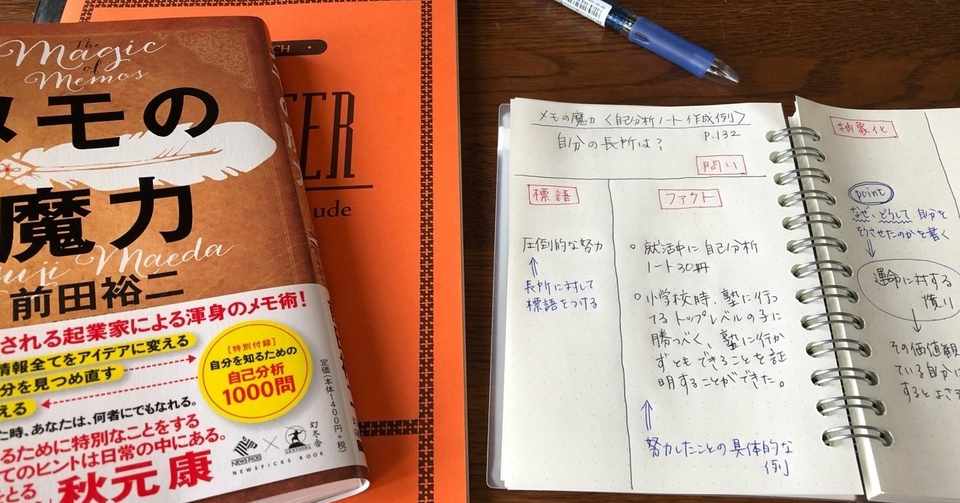 The
Magic
of
Memos
メモの
魔力
uji Maeda
前田裕二
される起業家による渾身のメモ術!
情報全てをアイデアに変える
分を見つめ直す
える
[特別付録]
自分を知るための
自己分析
1000問
た時、あなたは、何者にでもなれる。
るために特別なことをする
てのヒントは日常の中にある。
をとる
秋元 康
定価(本体1400円+税)
NEWSPICS
NEWSPICKS BOOK
幻冬舎
CH
ER
ude
メモの魔力〈自己分析ノート作成例〉
P.132
自分の長所は?
問い
標語
圧倒的な努力
長所に対して
標語をつける
ファクト
○ 就活中に自己分析
ノート30冊
○ 小学校時、塾に行っ
てるトップレベルの子に
勝つべく、塾に行か
ずともできることを証
明することができた。
努力したことの具体的な
例
抽象化
point
なぜ、どうして自分を
そうさせたのかを書く
運命に対する
憤り
その価値観
ている自分に
するとよさそ